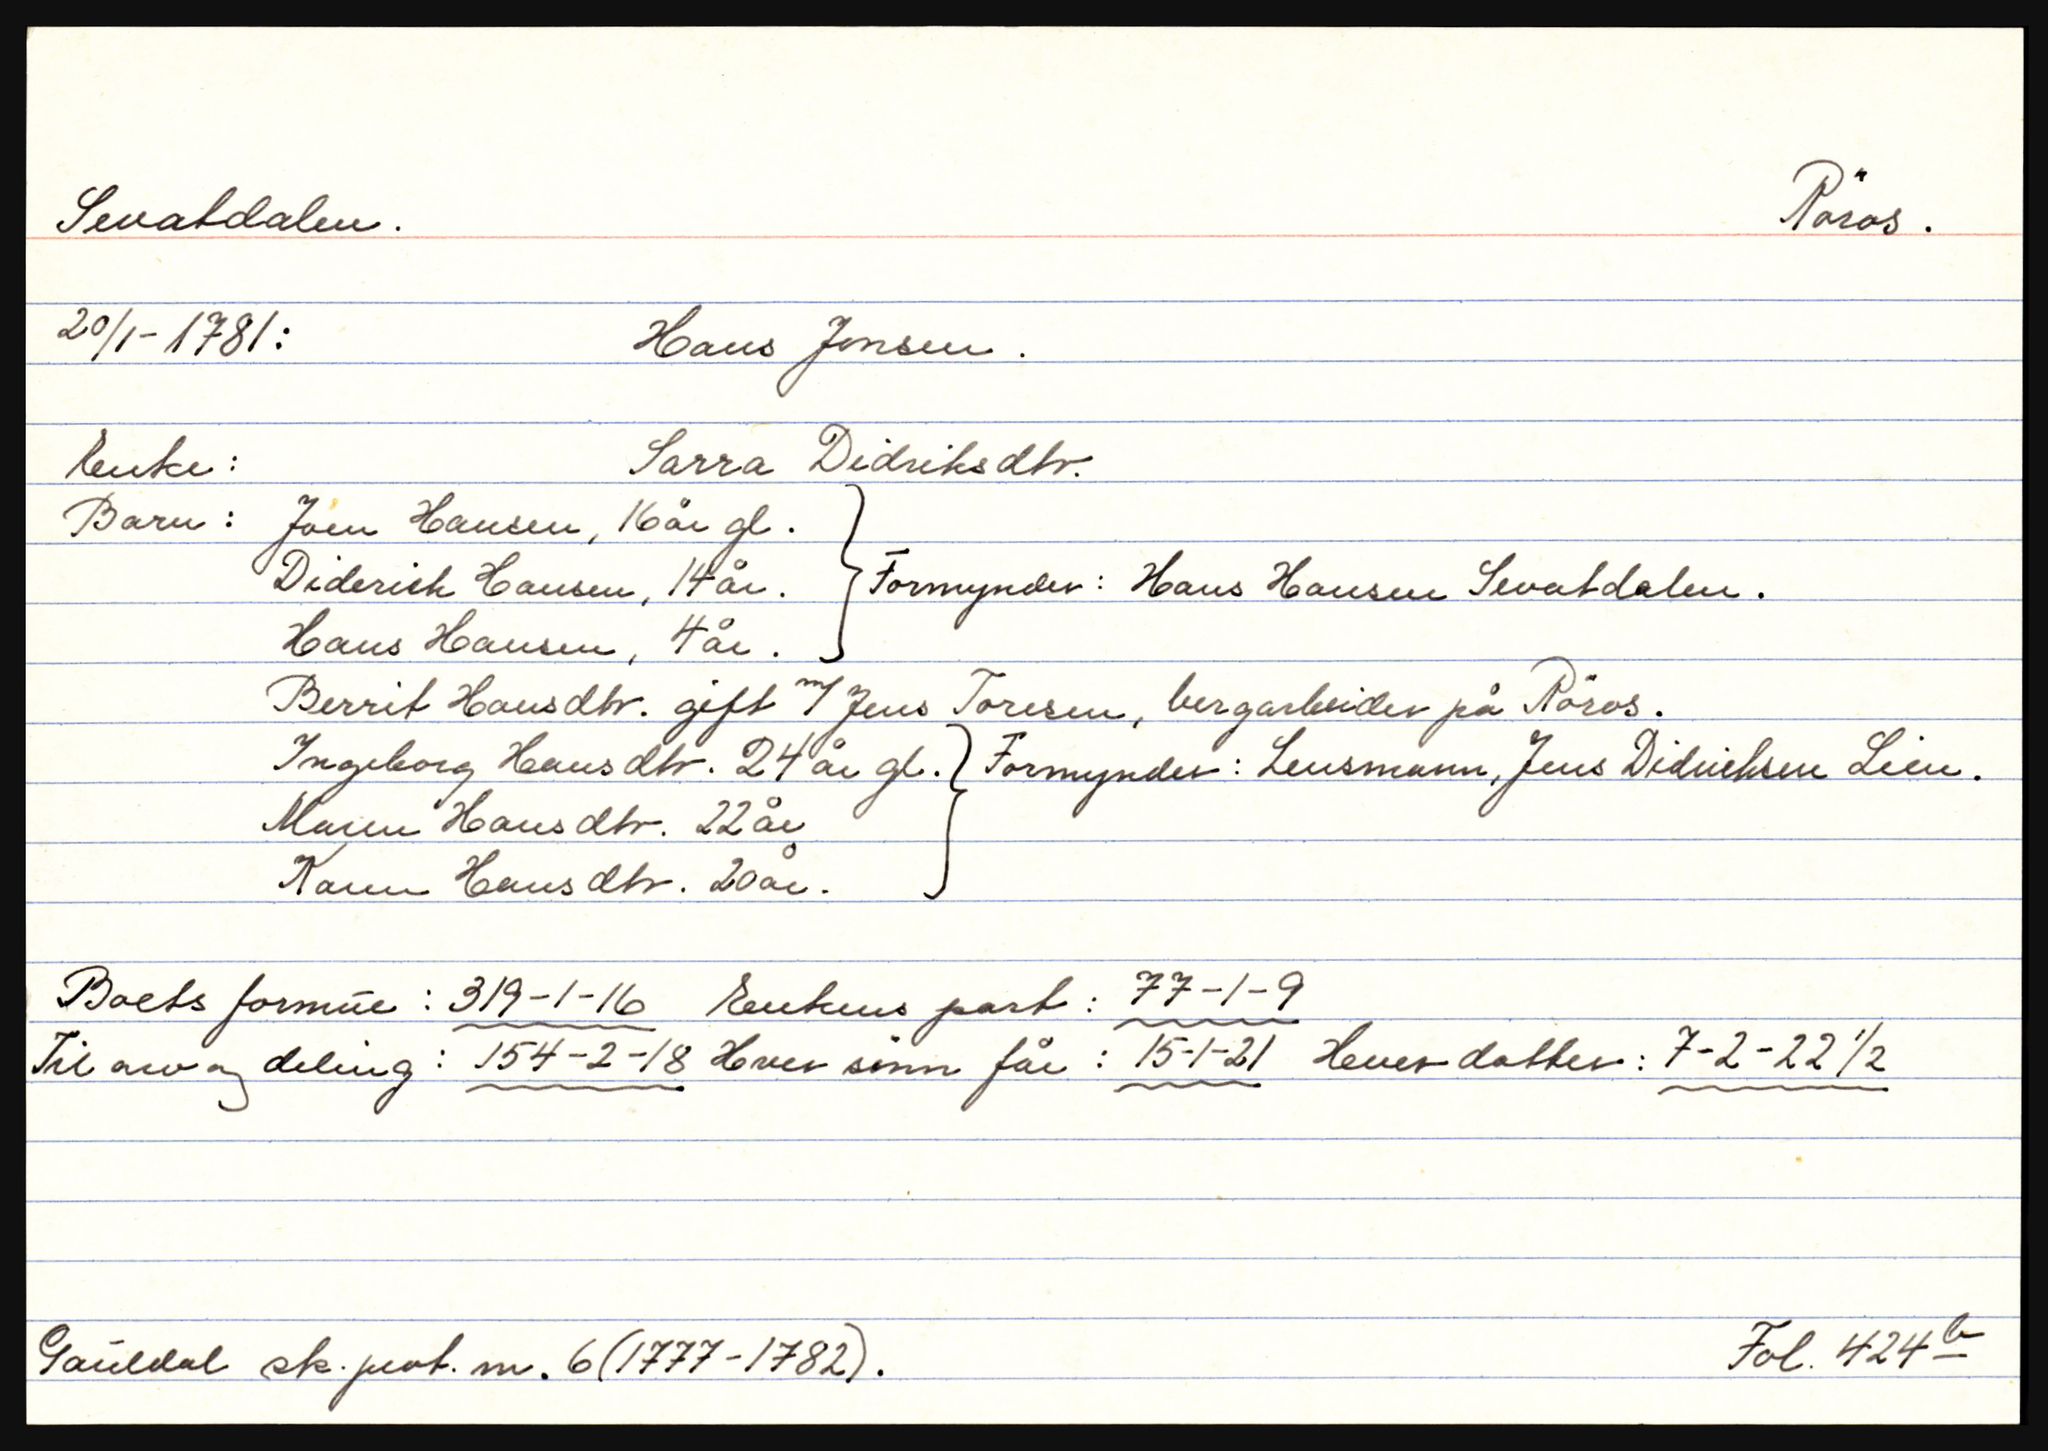 Sevatdalen. Röros.
20/1-1781: Hans Jonsen.
Enke: Sarra Didriksdtr.
Barn: Joen Hansen, 16 år gl.
Diderich Hansen, 14 år. } Formynder: Hans Hansen Sevatdalen.
Hans Hansen, 4 år.
Berrit Hansdtr. gift m/ Jens Toresen, bergarbeider på Röros.
Ingeborg Hansdtr. 24 år gl. } Formynder: Lensmann, Jens Didrichsen Lien.
Maren Hansdtr. 22 år
Karen Hansdtr. 20 år.
Boets formue: 319-1-16 Enkens part: 77-1-9
Til arv og deling: 154-2-18 Hver sönn får: 15-1-21 Hver datter: 7-2-22 1/2
Gauldal sk. prot. nr. 6 (1777-1782). Fol. 424 b